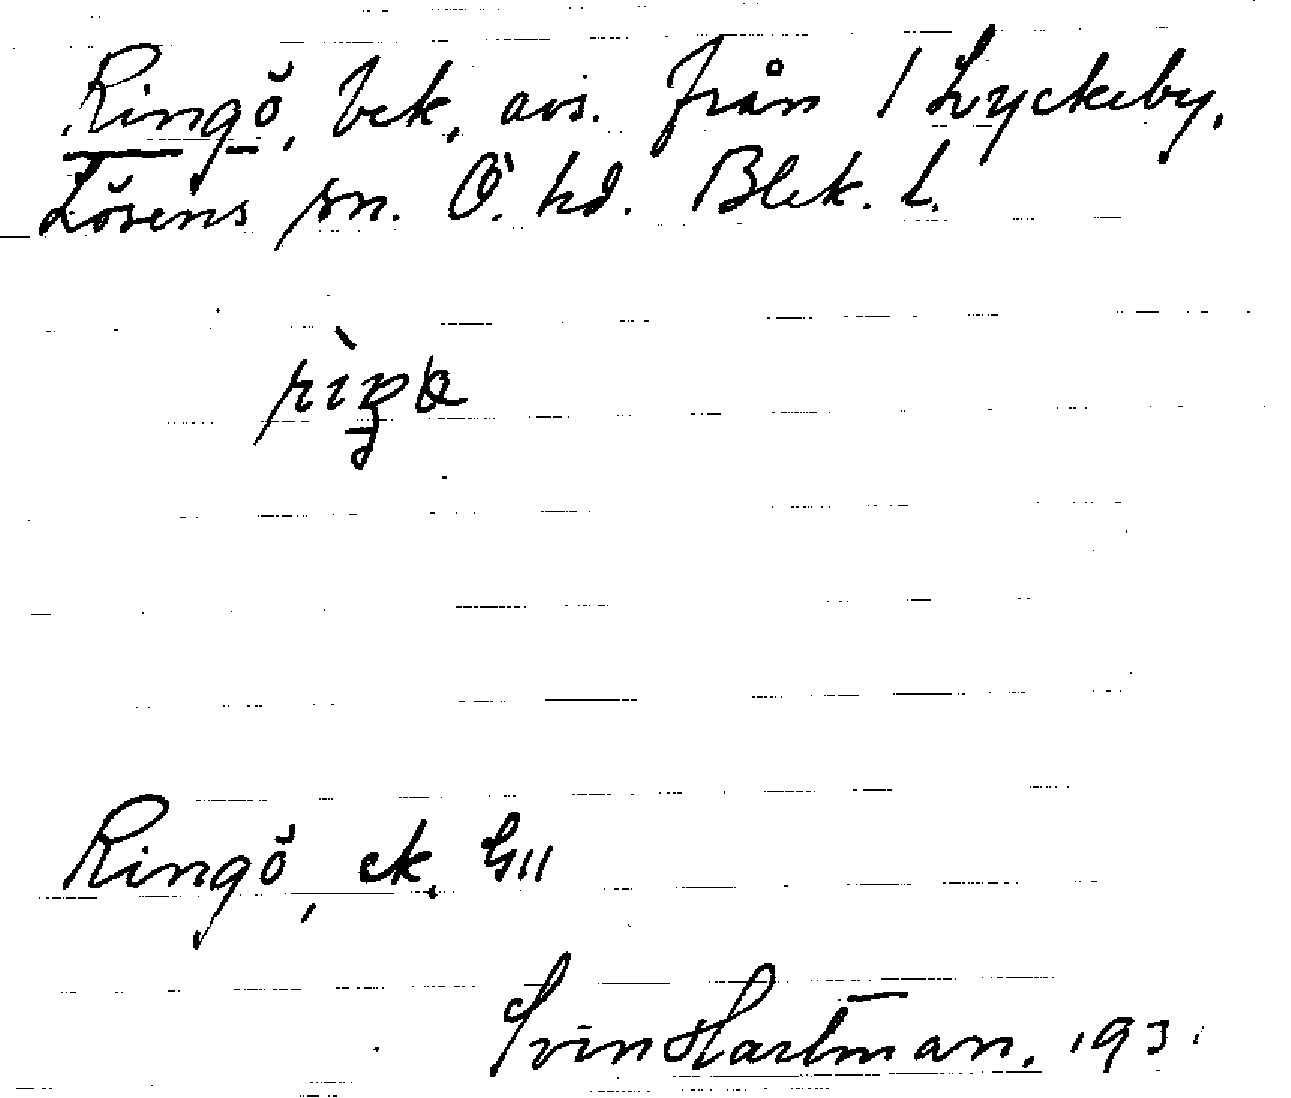 Ringö, bek. avs. från 1 Lyckeby,
Lösens sn. Ö. hd. Blek. l.
Ringö, ek. G11
Sven Hartman. 193